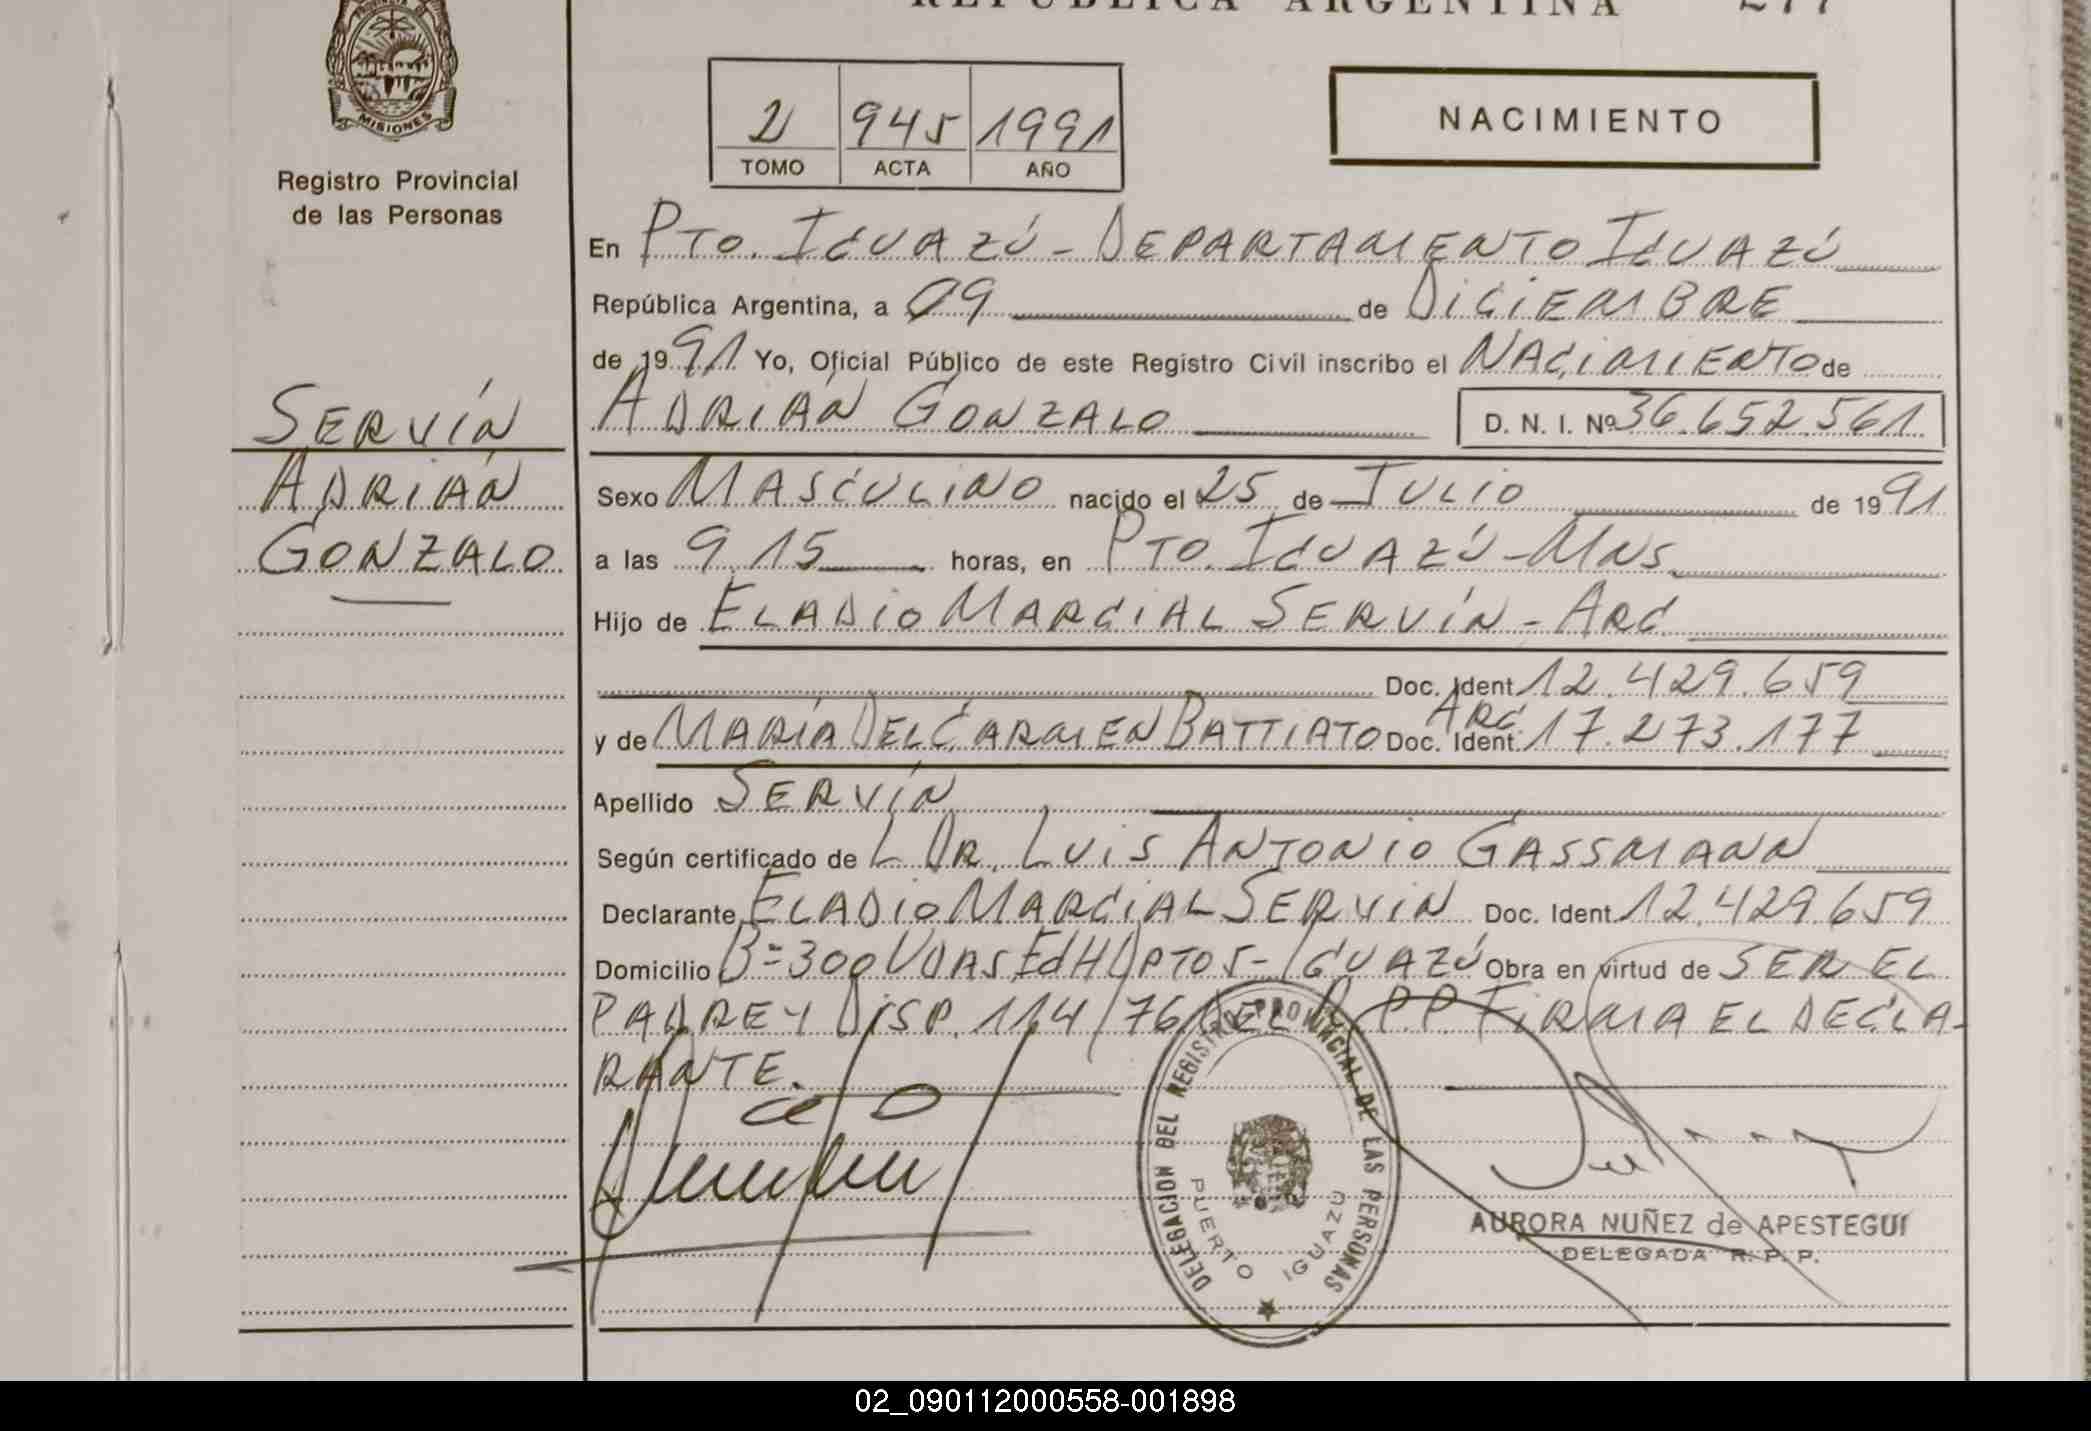 REPÚBLICA ARGENTINA 277
MISIONES
Registro Provincial
de las Personas
2 945 1991
TOMO ACTA AÑO
NACIMIENTO
En PTO. IGUAZÚ - DEPARTAMENTO IGUAZÚ
República Argentina, a 09 de DICIEMBRE
de 1991 Yo, Oficial Público de este Registro Civil inscribo el NACIMIENTO de
ADRIÁN GONZALO D. N. I. Nº 36.652.561
SERVÍN
ADRIÁN
GONZALO
Sexo MASCULINO nacido el 25 de JULIO de 1991
a las 9.15 horas, en PTO. IGUAZÚ - MNS.
Hijo de ELADIO MARCIAL SERVÍN - ARG.
Doc. Ident. 12.429.659
y de MARÍA DEL CARMEN BATTIATO ARG Doc. Ident. 17.273.177
Apellido SERVÍN
Según certificado de L DR. LUIS ANTONIO GASSMANN
Declarante ELADIO MARCIAL SERVIN Doc. Ident. 12.429.659
Domicilio Bº 300 VDAS Ed H DPTO 5 - IGUAZÚ Obra en virtud de SER EL
PADRE Y DISP. 114/76 DEL R.P.P. FIRMA EL DECLA-
RANTE.
DELEGACION DEL REGISTRO PROVINCIAL DE LAS PERSONAS
PUERTO IGUAZÚ
AURORA NUÑEZ de APESTEGUI
DELEGADA R. P. P.
02_090112000558-001898